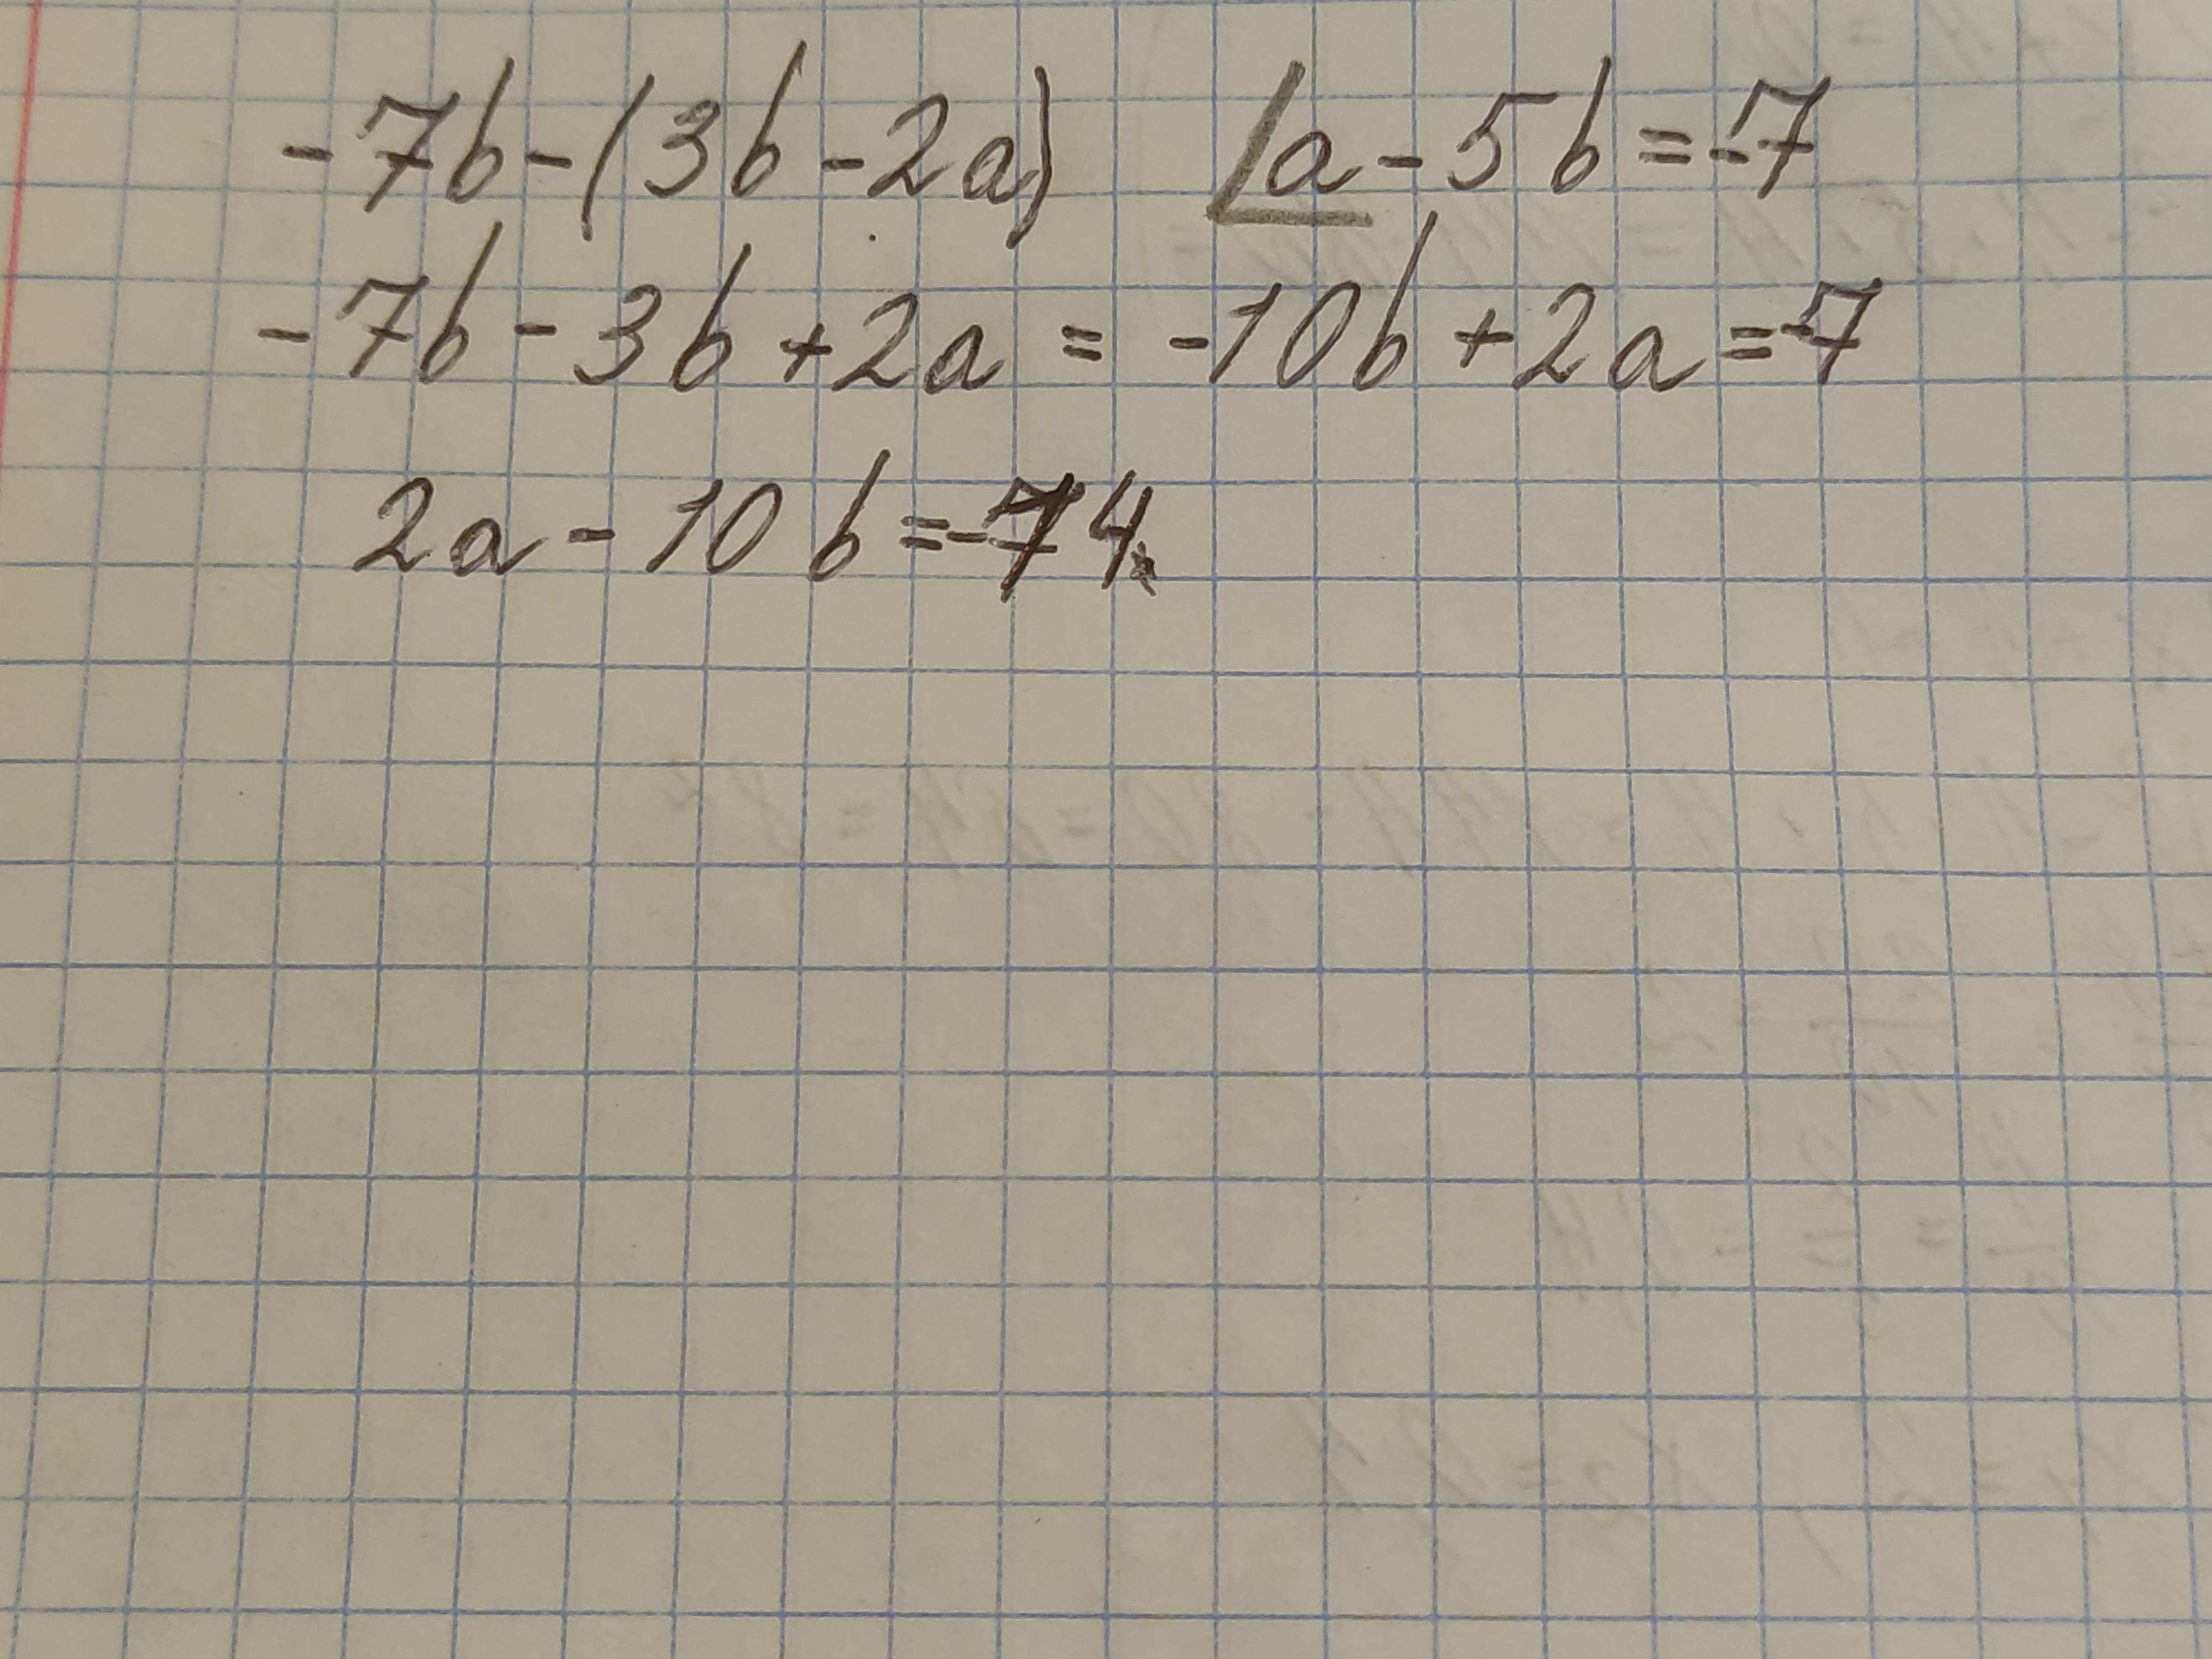 -7b-(3b-2a) a-5b=-7
-7b-3b+2a = -10b+2a=-7
2a-10b=-74